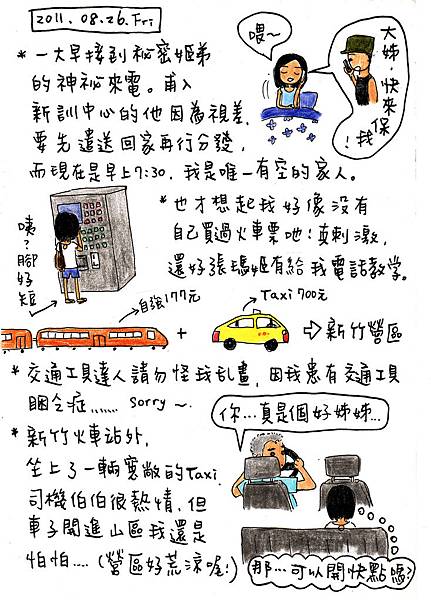 2011. 08. 26. Fri
* 一大早接到祕密姬弟
的神祕來電。甫入
新訓中心的他因為視差,
要先遣送回家再行分發,
而現在是早上7:30, 我是唯一有空的家人。
喂~
大姊,快來保我!
* 也才想起我好像沒有
自己買過火車票吔!真刺激,
還好張瑪姬有給我電話教學。
咦?腳好短
自強177元
+
Taxi 700元
⇨ 新竹營區
* 交通工具達人請勿怪我亂畫, 因我患有交通工具
睏令症....... sorry ~.
* 新竹火車站外,
坐上了一輛寬敞的Taxi
司機伯伯很熱情, 但
車子開進山區我還是
怕怕.... (營區好荒涼喔!)
你...真是個好姊姊...
那...可以開快點嗎?